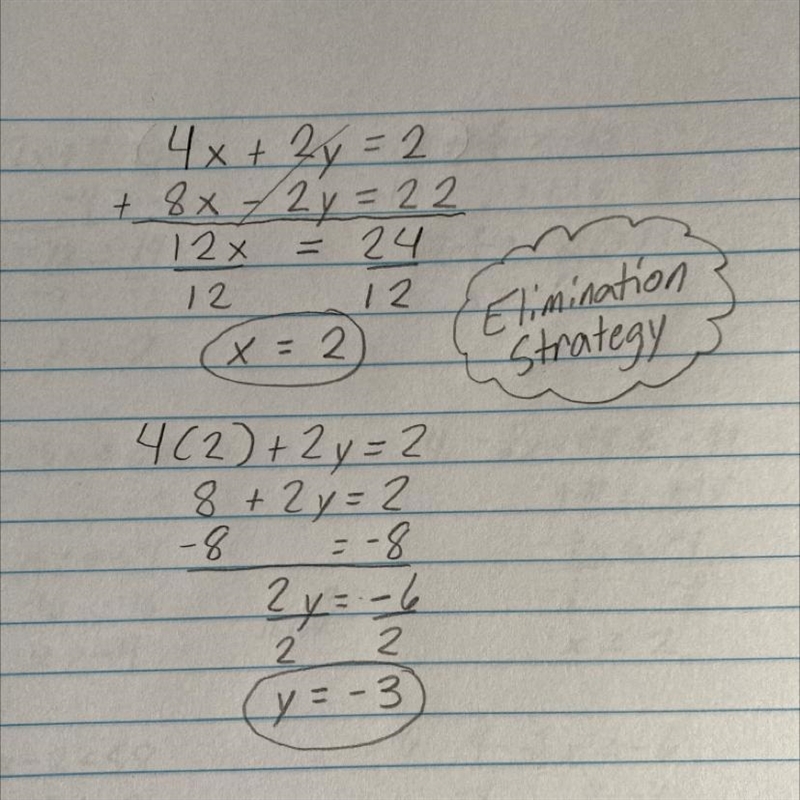 4x + 2y = 2
+ 8x - 2y = 22
12x = 24
12 12
x = 2
Elimination
Strategy
4(2) + 2y = 2
8 + 2y = 2
-8 = -8
2y = -6
2 2
y = -3